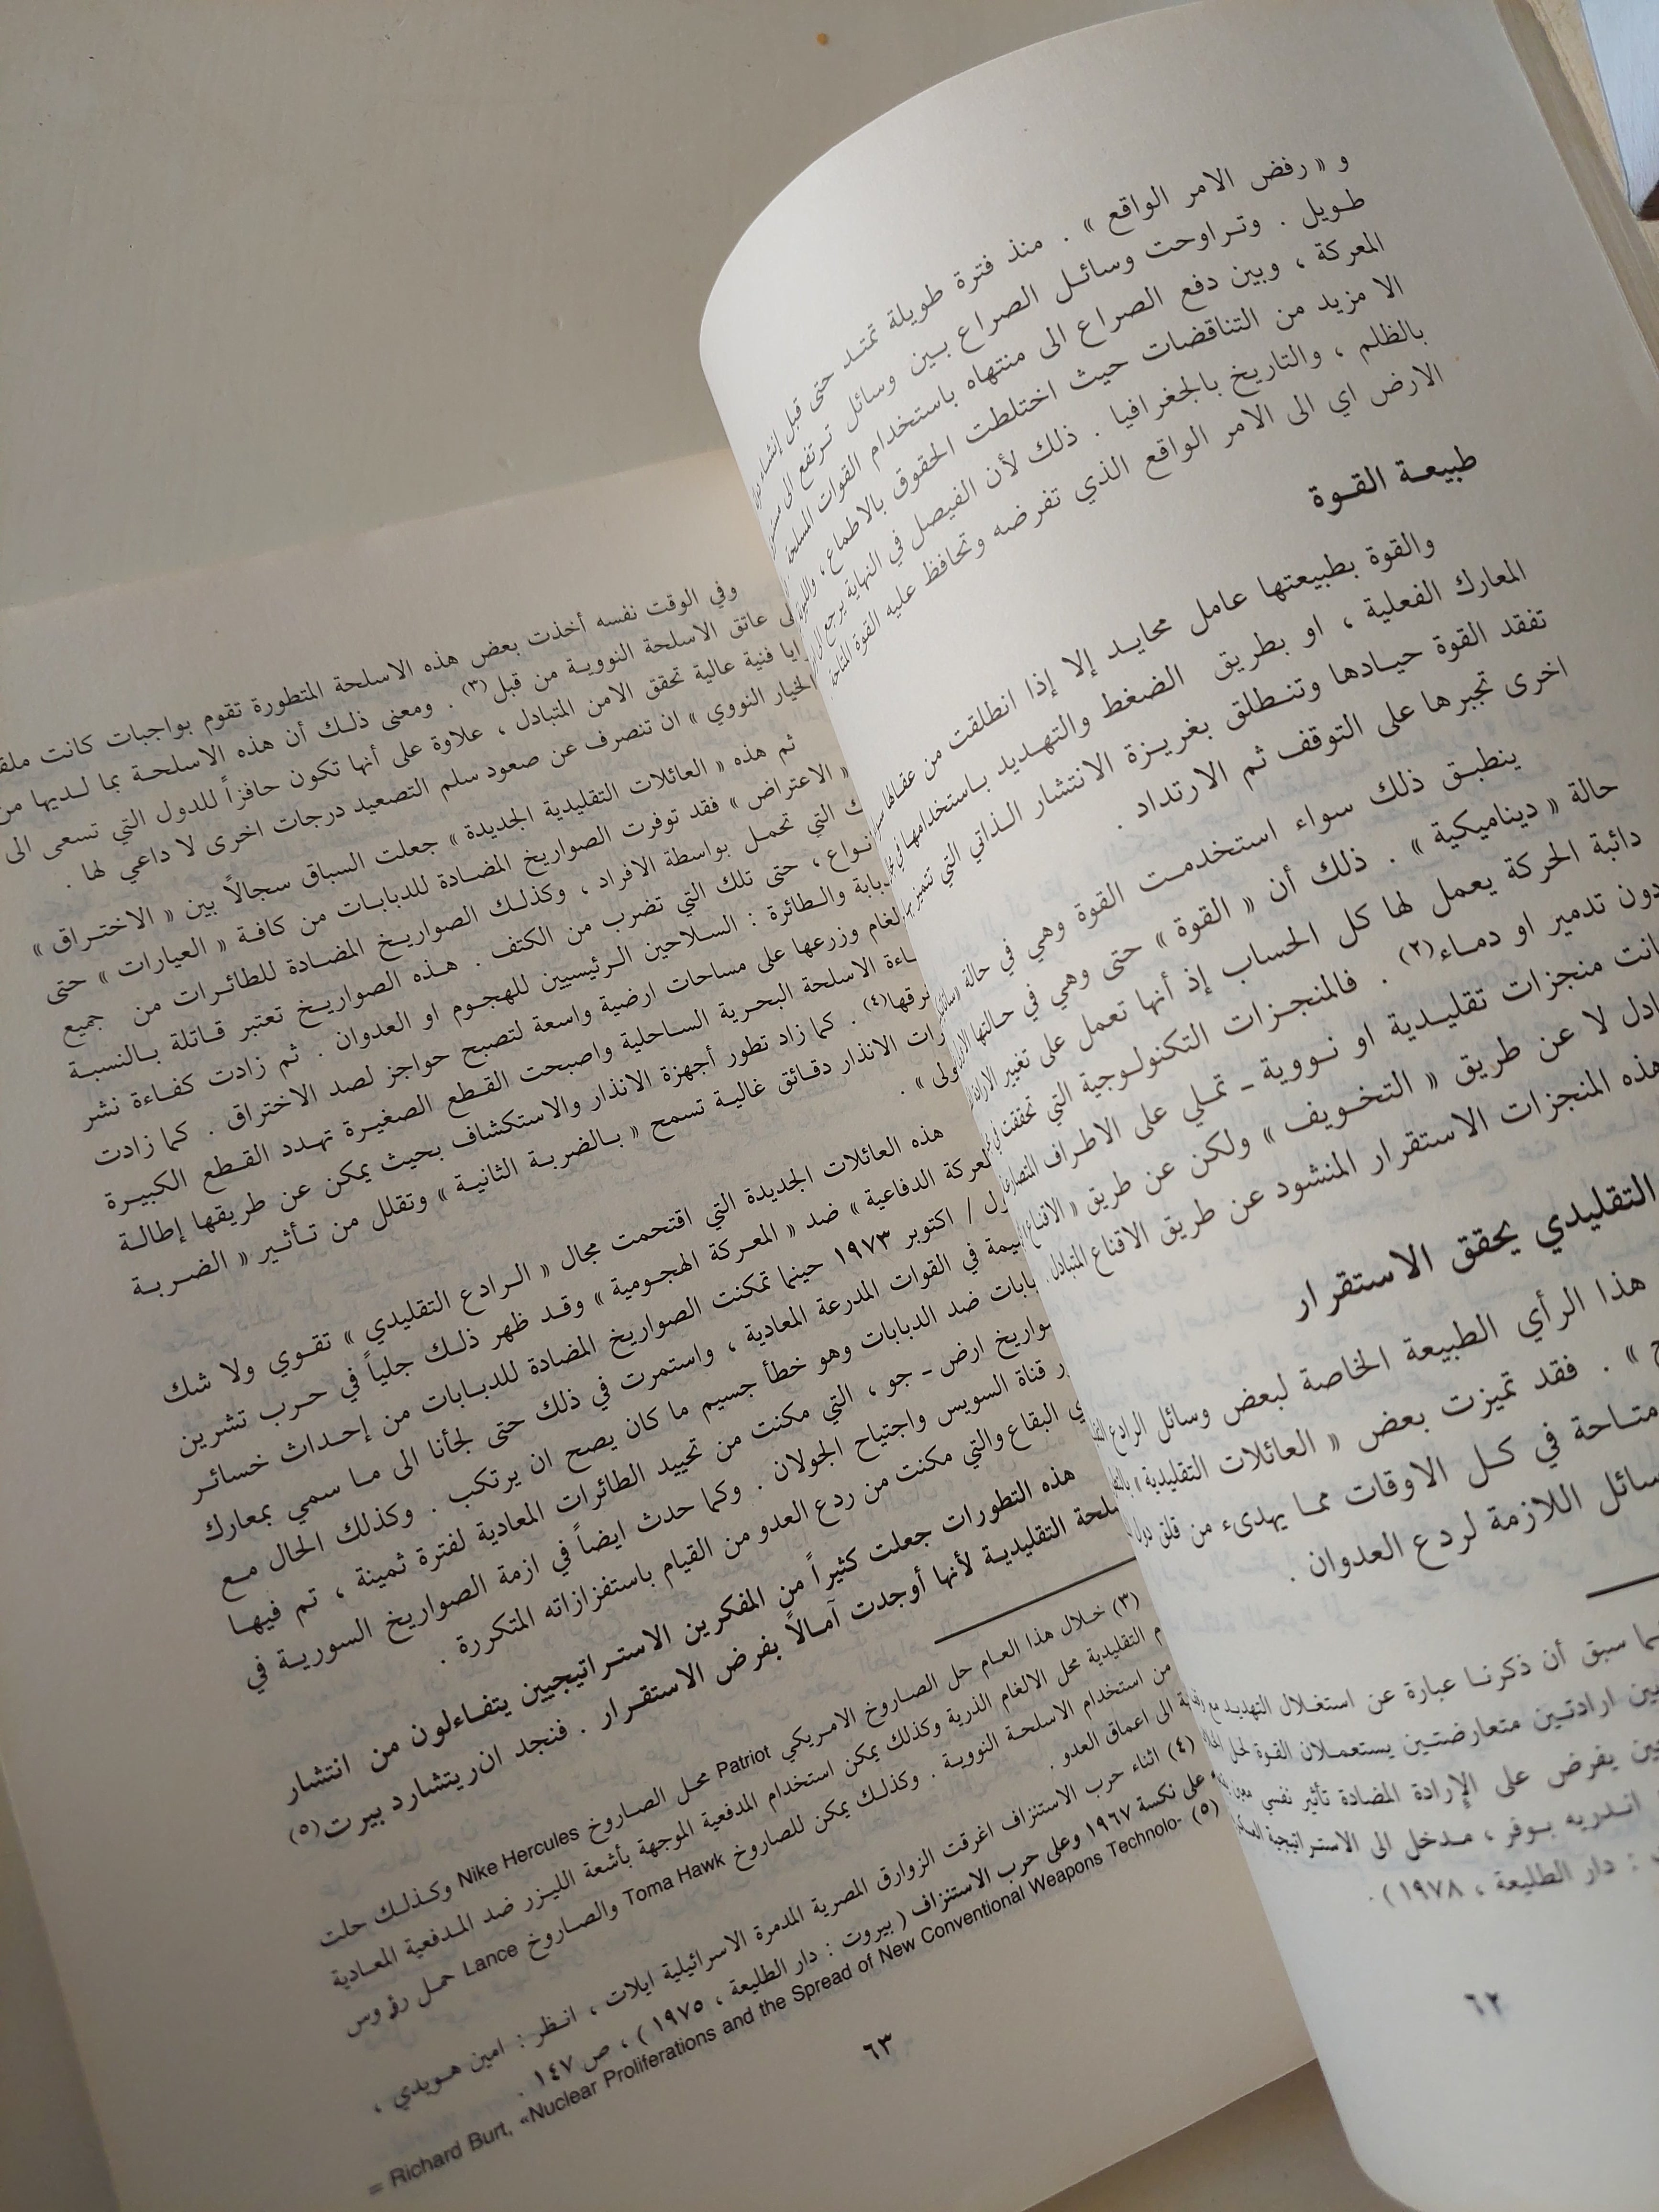 و « رفض الامر الواقع » . منذ فترة طويلة تمتـد حتى قبل إنشـاء
طـويل . وتـراوحت وسائـل الصراع بـين وسائل تـرتفع الى
المعركة ، وبين دفع الصراع الى منتهاه باستخدام القوات المسلحة
الا مزيد من التناقضات حيث اختلطت الحقوق بالاطماع ،
بالظلم ، والتاريخ بالجغرافيا . ذلك لأن الفيصل في النهاية يرجع الى
الارض اي الى الامر الواقع الذي تفرضه وتحافظ عليه القوة المتاحة
طبيعـة القـوة
والقوة بطبيعتها عامل محايـد إلا إذا انطلقت من عقـالها
المعارك الفعلية ، او بطريق الضغط والتهـديد بـاستخدامهـا في
تفقد القوة حيـادها وتنـطلق بغريـزة الانتشار الـذاتي التي تتميز
اخرى تجبرها على التوقف ثم الارتداد .
ينطبـق ذلك سواء استخدمـت القوة وهي في حالة
حالة « ديناميكية » . ذلك أن « القوة » حتى وهي في حـالتها
دائبة الحركة يعمل لها كل الحساب إذ أنها تعمل على تغيير
دون تدمير او دمـاء(٢) . فالمنجـزات التكنولـوجية التي تحققت في
انت منجزات تقليـدية او نـووية ـ تمـلي على الاطراف
ادل لا عن طريق « التخـويف » ولكن عن طريق « الاقناع
هذه المنجزات الاستقرار المنشود عن طريق الاقناع المتبادل .
التقليدي يحقق الاستقرار
هذا الرأي الطبيعة الخاصة لبعض وسائل الرادع
» . فقد تميزت بعض « العائلات التقليدية »
متـاحة في كـل الاوقات ممـا يهدىء من قلق
سائل اللازمة لردع العدوان .
ما سبق أن ذكرنـا عبارة عن استغـلال التهديـد مع
بين ارادتـين متعارضتـين يستعمـلان القوة لحل
ين يفرض على الإرادة المضادة تأثير نفسي معين
انـدريه بـوفر ، مـدخل الى الاستـراتيجية
: دار الطليعة ، ١٩٧٨ ) .
٦٢
وفي الوقت نفسه أخذت بعض هذه الاسلحة المتطورة تقوم بواجبات كانت ملقـ
لى عاتق الاسلحة النوويـة من قبل(٣) . ومعنى ذلـك أن هذه الاسلحـة بما لـديها من
زايا فنية عالية تحقق الامن المتبادل ، علاوة على أنها تكون حافزاً للدول التي تسعى الى
الخيار النووي » ان تنصرف عن صعود سلم التصعيد درجات اخرى لا داعي لها .
ثم هذه « العائلات التقليدية الجديدة » جعلت السباق سجالاً بين « الاختـراق »
« الاعتراض » فقد توفرت الصواريخ المضـادة للدبابـات من كافـة « العيارات » حتى
ك التي تحمـل بواسطة الافراد ، وكذلـك الصواريـخ المضـادة للطائـرات من جميع
انـواع ، حتى تلك التي تضرب من الكتف . هـذه الصواريـخ تعتبر قـاتلة بـالنسبـة
دبابة والـطائرة : السـلاحين الـرئيسيين للهجـوم او العدوان . ثم زادت كفـاءة نشر
لغام وزرعها على مساحات ارضية واسعة لتصبح حواجز لصد الاختراق . كما زادت
ـاءة الاسلحة البحرية السـاحلية واصبحت القـطع الصغيـرة تهـدد القـطع الكبيـرة
غرقها(٤) . كما زاد تطور أجهزة الانذار والاستكشاف بحيث يمكن عن طريقها إطالـة
رات الانذار دقـائق غاليـة تسمح « بـالضربـة الثانيـة » وتقلل من تـأثـير « الضـربـة
ولى » .
هذه العائلات الجديدة التي اقتحمت مجال « الـرادع التقليدي » تقـوي ولا شك
لعركة الدفاعية » ضد « المعـركة الهجـومية » وقـد ظهر ذلـك جلياً في حـرب تشرين
ول / اكتوبر ١٩٧٣ حينما تمكنت الصواريخ المضادة للدبـابات من إحـداث خسائـر
يمة في القوات المدرعة المعادية ، واستمرت في ذلك حتى لجأنا الى مـا سمي بمعارك
بابات ضد الدبابات وهو خطأ جسيم ما كان يصح ان يرتكب . وكذلك الحال مـع
واريخ ارض - جو ، التي مكنت من تحييد الطائرات المعادية لفترة ثمينة ، تم فيهـا
ر قناة السويس واجتياح الجولان . وكما حدث ايضاً في ازمة الصواريخ السوريـة في
ي البقاع والتي مكنت من ردع العدو من القيام باستفزازاته المتكررة .
هذه التطورات جعلت كثيراً من المفكرين الاستـراتيجيين يتفـاءلون من انتشار
سلحة التقليديـة لأنها أوجدت آمـالاً بفرض الاستقـرار . فنجد ان ريتشارد بيرت(٥)
(٣) خـلال هذا العـام حل الصـاروخ الامـريكي Patriot محـل الصـاروخ Nike Hercules وكـذلـك حلت
م التقليدية محل الالغام الذرية وكذلك يمكن استخدام المدفعية الموجهة بأشعة الليـزر ضد المـدفعية المعـادية
من استخدام الاسلحـة النوويـة . وكذلـك يمكن للصاروخ Toma Hawk والصـاروخ Lance حمـل رؤوس
ية الى اعماق العدو .
(٤) اثناء حرب الاستنزاف اغرقت الزوارق المصرية المدمرة الاسرائيلية ايلات ، انـظر : امين هـويدي ،
على نكسة ١٩٦٧ وعلى حرب الاستنزاف ( بيروت : دار الطليعة ، ١٩٧٥ ) ، ص ١٤٧ .
(٥) Richard Burt, «Nuclear Proliferations and the Spread of New Conventional Weapons Technolo- =
٦٣